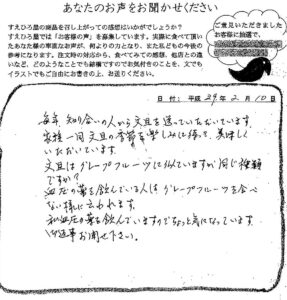 あなたのお声をお聞かせください
すえひろ屋の商品を召し上がっての感想はいかがでしょうか?
すえひろ屋では「お客様の声」を募集しています。実際に食べて頂いた
あなた様の率直なお声が、何よりの力となり、また私どもの今後の
参考になります。注文時の対応から、食べてみての感想、他店との違
いなど、どのようなことでも結構ですのでお気付きのことを、文でも
イラストでもご自由にお書きの上、お送りください。
ご意見いただきました
お客様に抽選で、
日付:平成 29年 2月 10日
毎年 知り合いの人から文旦を送っていただいています。
家族一同 文旦の季節を楽しみに待って、美味しく
いただいています。
文旦はグレープフルーツに似ていますが同じ種類
ですか?
血圧の薬を飲んでいる人はグレープフルーツを食べ
ない様に云われます。
私血圧の薬を飲んでいますのでちょっと気になっています
お聞せ下さい。